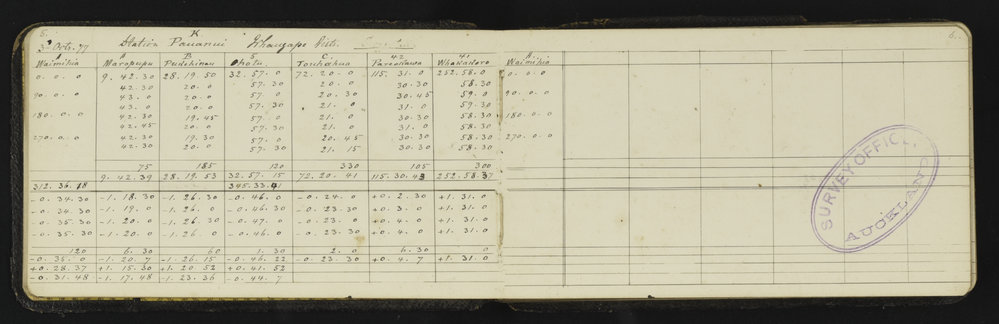 5. K 6.
3 Octr. 77 Station Pauanui Whangape Distr.
A A B S C 42 41 A
Waimihia Maropupu Otohu Parewhawa Whakatoro Waimihia
0. 0. 0 9. 42. 30 28. 19. 50 32. 57. 0 72. 20. 0 115. 31. 0 252. 58. 0 0. 0. 0
42. 30 20. 0 57. 30 21. 0 30. 30 58. 30
90. 0. 0 43. 0 20. 0 57. 0 20. 30 30. 45 59. 0 90. 0. 0
43. 0 20. 0 57. 30 21. 0 31. 0 59. 30
180. 0. 0 42. 30 19. 45 57. 0 21. 0 30. 30 58. 30 180. 0. 0
42. 45 20. 0 57. 30 21. 0 31. 0 58. 30
270. 0. 0 42. 30 19. 30 57. 0 20. 45 30. 30 58. 30 270. 0. 0
42. 30 20. 0 57. 30 21. 15 30. 30 58. 30
75 185 120 330 105 300
9. 42. 39 28. 19. 53 32. 57. 15 72. 20. 41 115. 30. 43 252. 58. 37
312. 36. 18 345. 33. 41
-0. 34. 30 -1. 18. 30 -1. 26. 30 -0. 46. 0 -0. 24. 0 +0. 2. 30 +1. 31. 0
-0. 34. 30 -1. 19. 0 -1. 26. 0 -0. 46. 30 -0. 23. 30 +0. 3. 0 +1. 31. 0
-0. 35. 30 -1. 20. 0 -1. 26. 30 -0. 47. 0 -0. 23. 0 +0. 4. 0 +1. 31. 0
-0. 35. 30 -1. 20. 0 -1. 26. 0 -0. 46. 0 -0. 23. 30 +0. 4. 0 +1. 31. 0
120 6. 30 60 1. 30 2. 0 6. 30 0
-0. 35. 0 -1. 20. 7 -1. 26. 15 -0. 46. 22 -0. 23. 30 +0. 4. 7 +1. 31. 0
+0. 28. 37 +1. 15. 30 +1. 20. 52 +0. 41. 52
-0. 31. 48 -1. 17. 48 -1. 23. 36 -0. 44. 7
SURVEY OFFICE,
AUCKLAND